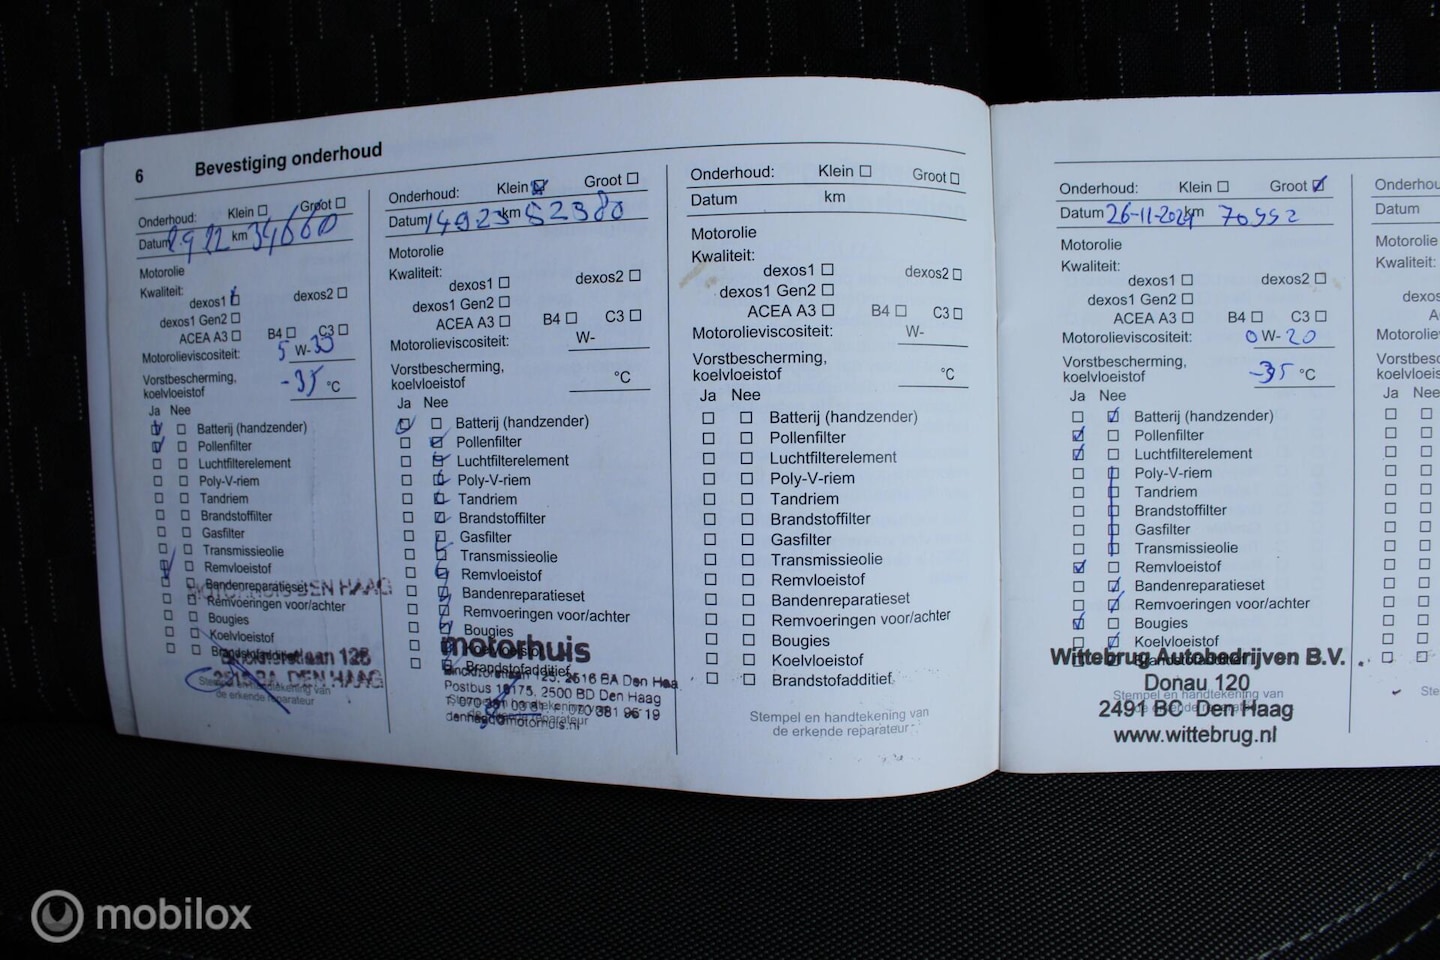 6 Bevestiging onderhoud
Onderhoud: Klein ☐ Groot ☐
km 34660
Motorolie
Kwaliteit:
dexos1 ☑ dexos2 ☐
dexos1 Gen2 ☐
ACEA A3 ☐ B4 ☐ C3 ☐
Motorolieviscositeit: 5 W-30
Vorstbescherming,
koelvloeistof -35 °C
Ja Nee
Batterij (handzender)
Pollenfilter
Luchtfilterelement
Poly-V-riem
Tandriem
Brandstoffilter
Gasfilter
Transmissieolie
Remvloeistof
Bandenreparatieset
Remvoeringen voor/achter
Bougies
Koelvloeistof
MOTORHUIS DEN HAAG
Binckhorstlaan 125
2516 BA DEN HAAG
Stempel en handtekening van
de erkende reparateur
Onderhoud: Klein ☑ Groot ☐
Datum 14923 km 52380
Motorolie
Kwaliteit:
dexos1 ☐ dexos2 ☐
dexos1 Gen2 ☐
ACEA A3 ☐ B4 ☐ C3 ☐
Motorolieviscositeit: W-
Vorstbescherming,
koelvloeistof °C
Ja Nee
Batterij (handzender)
Pollenfilter
Luchtfilterelement
Poly-V-riem
Tandriem
Brandstoffilter
Gasfilter
Transmissieolie
Remvloeistof
Bandenreparatieset
Remvoeringen voor/achter
Bougies
motorhuis
Brandstofadditief
Binckhorstlaan 125, 2516 BA Den Haa
Postbus 16175, 2500 BD Den Haag
denhaag@motorhuis.nl
Onderhoud: Klein ☐ Groot ☐
Datum km
Motorolie
Kwaliteit:
dexos1 ☐ dexos2 ☐
dexos1 Gen2 ☐
ACEA A3 ☐ B4 ☐ C3 ☐
Motorolieviscositeit: W-
Vorstbescherming,
koelvloeistof °C
Ja Nee
☐ ☐ Batterij (handzender)
☐ ☐ Pollenfilter
☐ ☐ Luchtfilterelement
☐ ☐ Poly-V-riem
☐ ☐ Tandriem
☐ ☐ Brandstoffilter
☐ ☐ Gasfilter
☐ ☐ Transmissieolie
☐ ☐ Remvloeistof
☐ ☐ Bandenreparatieset
☐ ☐ Remvoeringen voor/achter
☐ ☐ Bougies
☐ ☐ Koelvloeistof
☐ ☐ Brandstofadditief
Stempel en handtekening van
de erkende reparateur
Onderhoud: Klein ☐ Groot ☑
Datum 26-11-2024 km 70552
Motorolie
Kwaliteit:
dexos1 ☐ dexos2 ☐
dexos1 Gen2 ☐
ACEA A3 ☐ B4 ☐ C3 ☐
Motorolieviscositeit: 0 W-20
Vorstbescherming,
koelvloeistof -35 °C
Ja Nee
Batterij (handzender)
Pollenfilter
Luchtfilterelement
Poly-V-riem
Tandriem
Brandstoffilter
Gasfilter
Transmissieolie
Remvloeistof
Bandenreparatieset
Remvoeringen voor/achter
Bougies
Koelvloeistof
Wittebrug Autobedrijven B.V.
Donau 120
Stempel en handtekening van
2491 BC Den Haag
www.wittebrug.nl
Onderhou
Datum
Motorolie
Kwaliteit:
dexos
Motorolie
Vorstbesc
koelvloeis
Ja Nee
Ste
mobilox